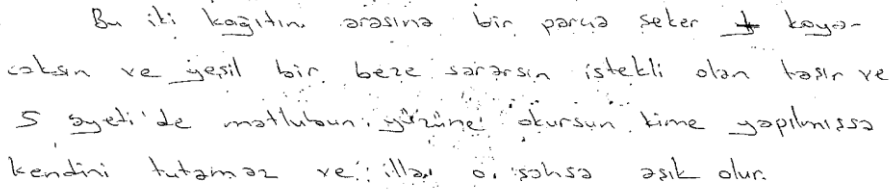 Bu iki kağıtın arasına bir parça şeker koya-
caksın ve yeşil bir beze sararsın istekli olan taşır ve
5 ayeti'de matlubun yüzüne okursun kime yapılmışsa
kendini tutamaz ve illa o şahsa aşık olur.